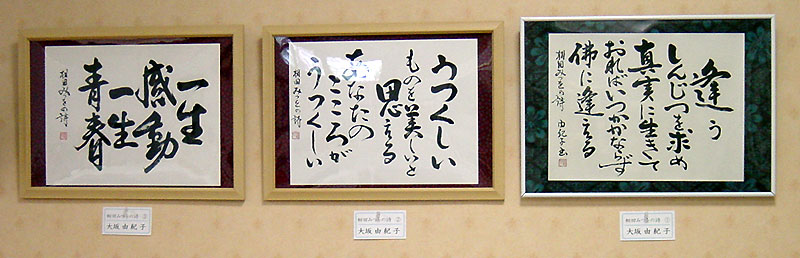 逢う
しんじつを求め
真実に生きて
おればいつかかならず
佛に逢える
相田みつをの詩 由紀子書
相田みつをの詩 ①
大坂由紀子
うつくしい
ものを美しいと
思える
あなたの
こころが
うつくしい
相田みつをの詩
相田みつをの詩 ②
大坂由紀子
一生
感動
一生
青春
相田みつをの詩
相田みつをの詩 ③
大坂由紀子